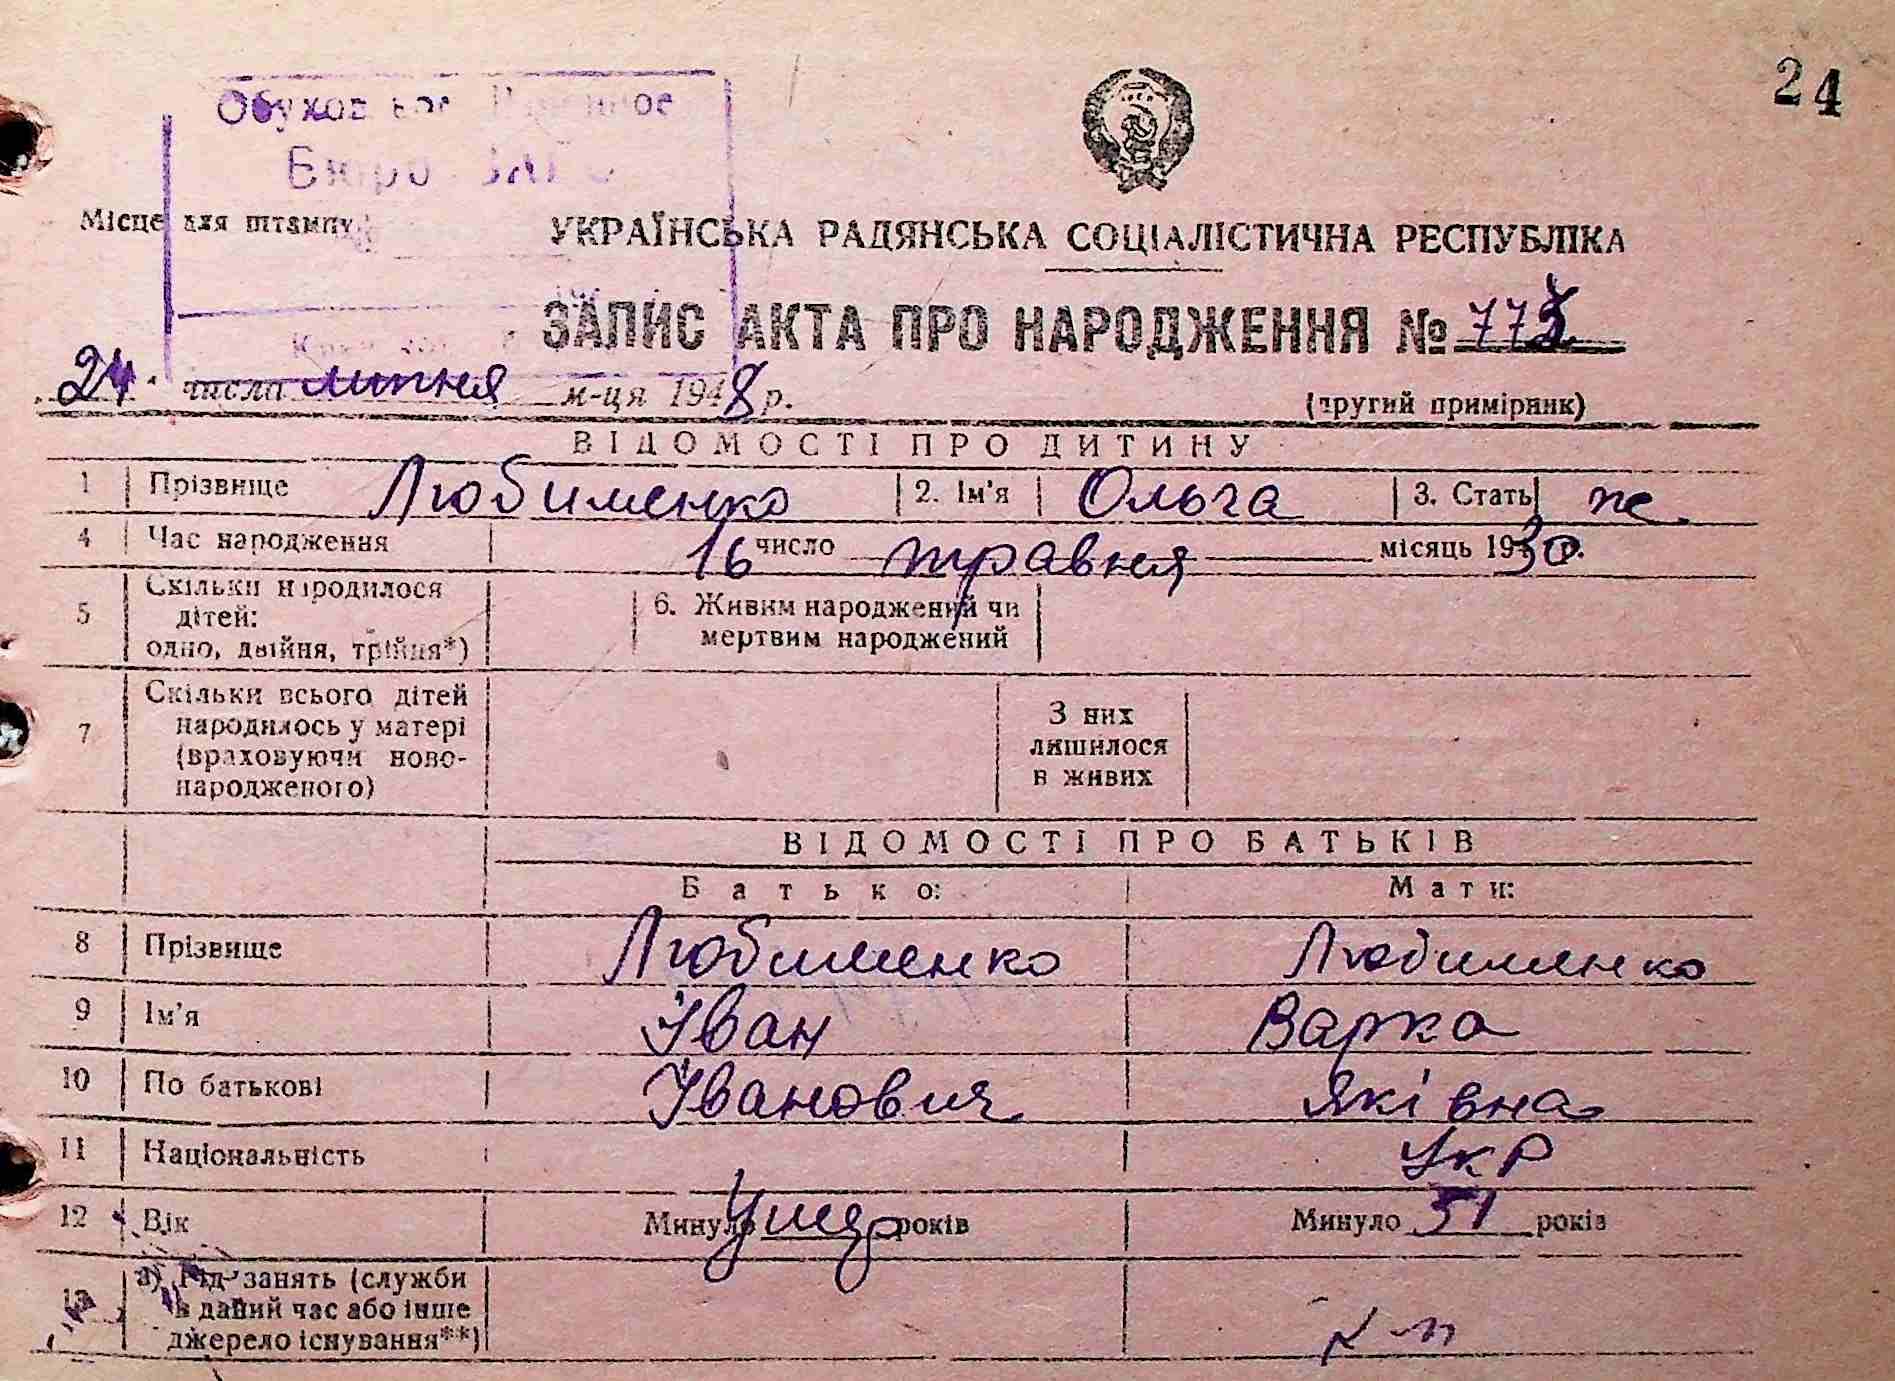 24
Бюро ЗАГС
Місце для штампу
УКРАЇНСЬКА РАДЯНСЬКА СОЦІАЛІСТИЧНА РЕСПУБЛІКА
ЗАПИС АКТА ПРО НАРОДЖЕННЯ №
24 числа липня м-ця 1948 р.
(другий примірник)
ВІДОМОСТІ ПРО ДИТИНУ
1 Прізвище Любименко 2. Ім'я Ольга 3. Стать же.
4 Час народження 16 число травня місяць 1930 р.
5 Скільки народилося дітей: одно, двійня, трійня*) 6. Живим народжений чи мертвим народжений
7 Скільки всього дітей народилось у матері (враховуючи ново-народженого) З них лишилося в живих
ВІДОМОСТІ ПРО БАТЬКІВ
Батько: Мати:
8 Прізвище Любименко Любименко
9 Ім'я Іван Варка
10 По батькові Іванович Яківна
11 Національність Укр
12 Вік Минуло умер років Минуло 51 років
13 а) Рід занять (служби в даний час або інше джерело існування**)